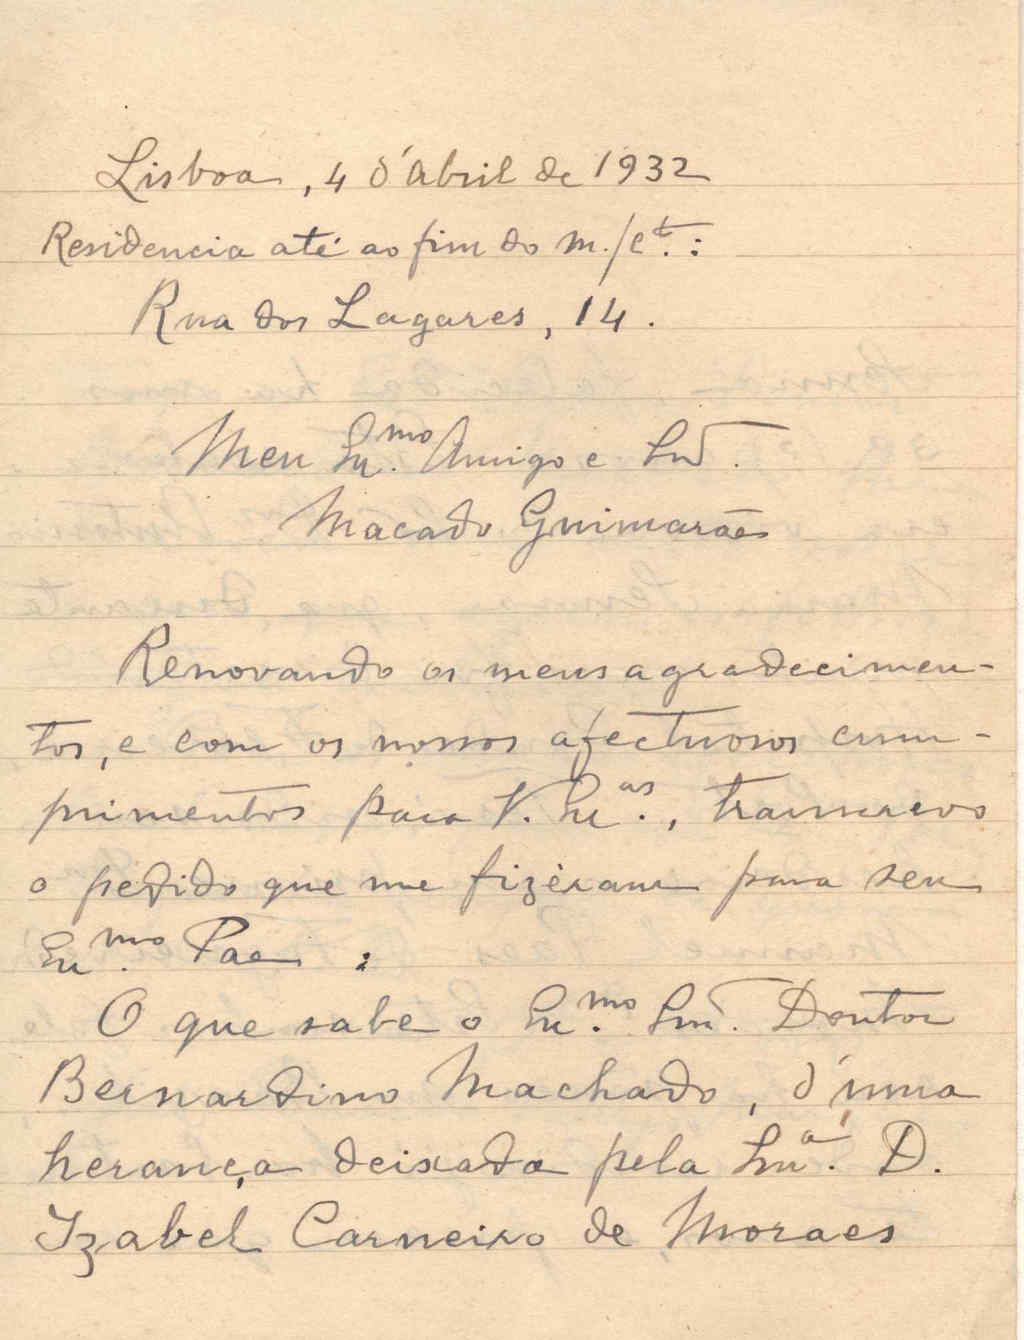 Lisboa, 4 d'Abril de 1932
Residencia até ao fim do m./c.te:
Rua dos Lagares, 14.
Meu Ex.mo Amigo e Snr.
Macado Guimarães
Renovando os meus agradecimen-
tos, e com os nossos afectuosos cum-
primentos para V. Ex.as, transcrevo
o pedido que me fizéram para seu
Ex.mo Pae:
O que sabe o Ex.mo Snr. Doutor
Bernardino Machado, d'uma
herança deixada pela Snr.a D.
Izabel Carneiro de Moraes